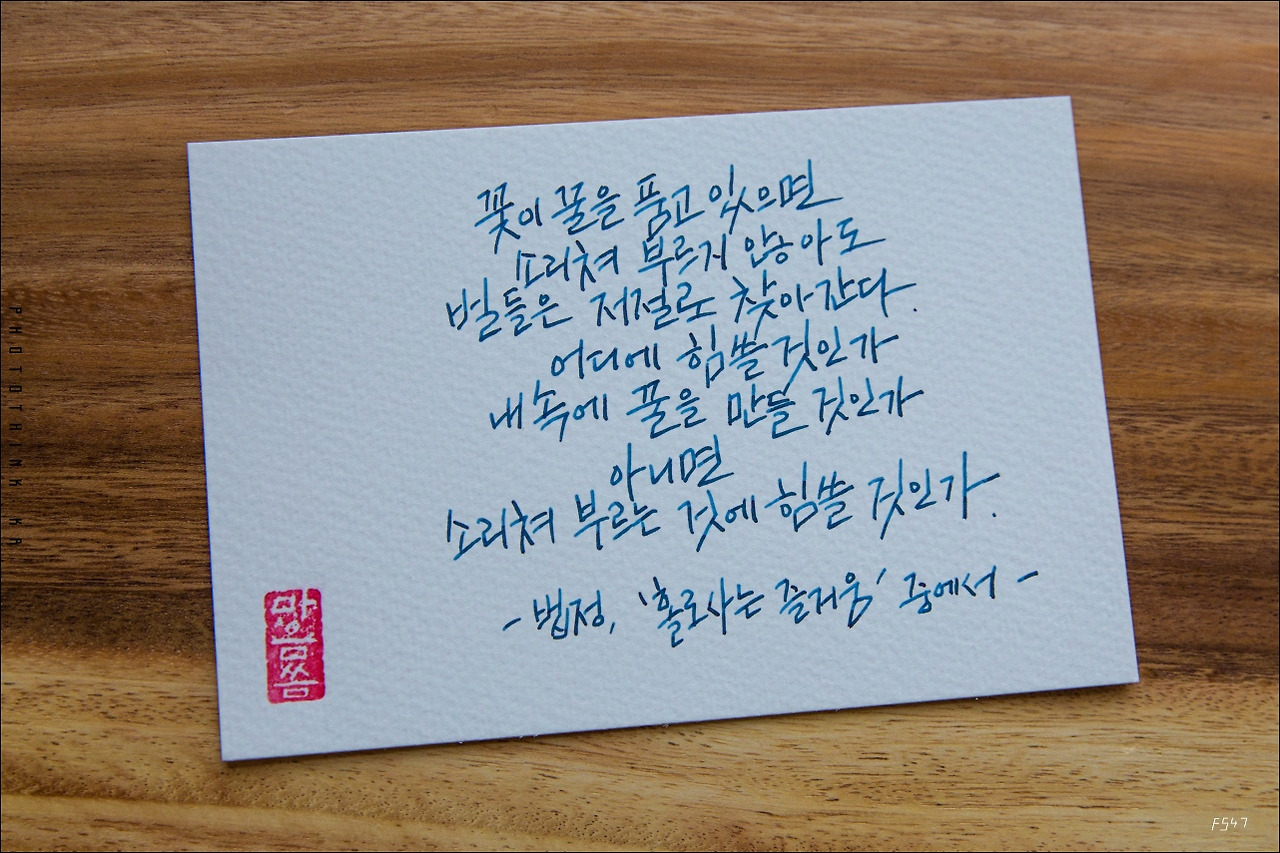 꽃이 꿀을 품고 있으면
소리쳐 부르지 않아도
벌들은 저절로 찾아간다.
어디에 힘쓸 것인가
내 속에 꿀을 만들 것인가
아니면
소리쳐 부르는 것에 힘쓸 것인가.
- 법정, '홀로 사는 즐거움' 중에서 -
PHOTOTHINK.KR
FS47